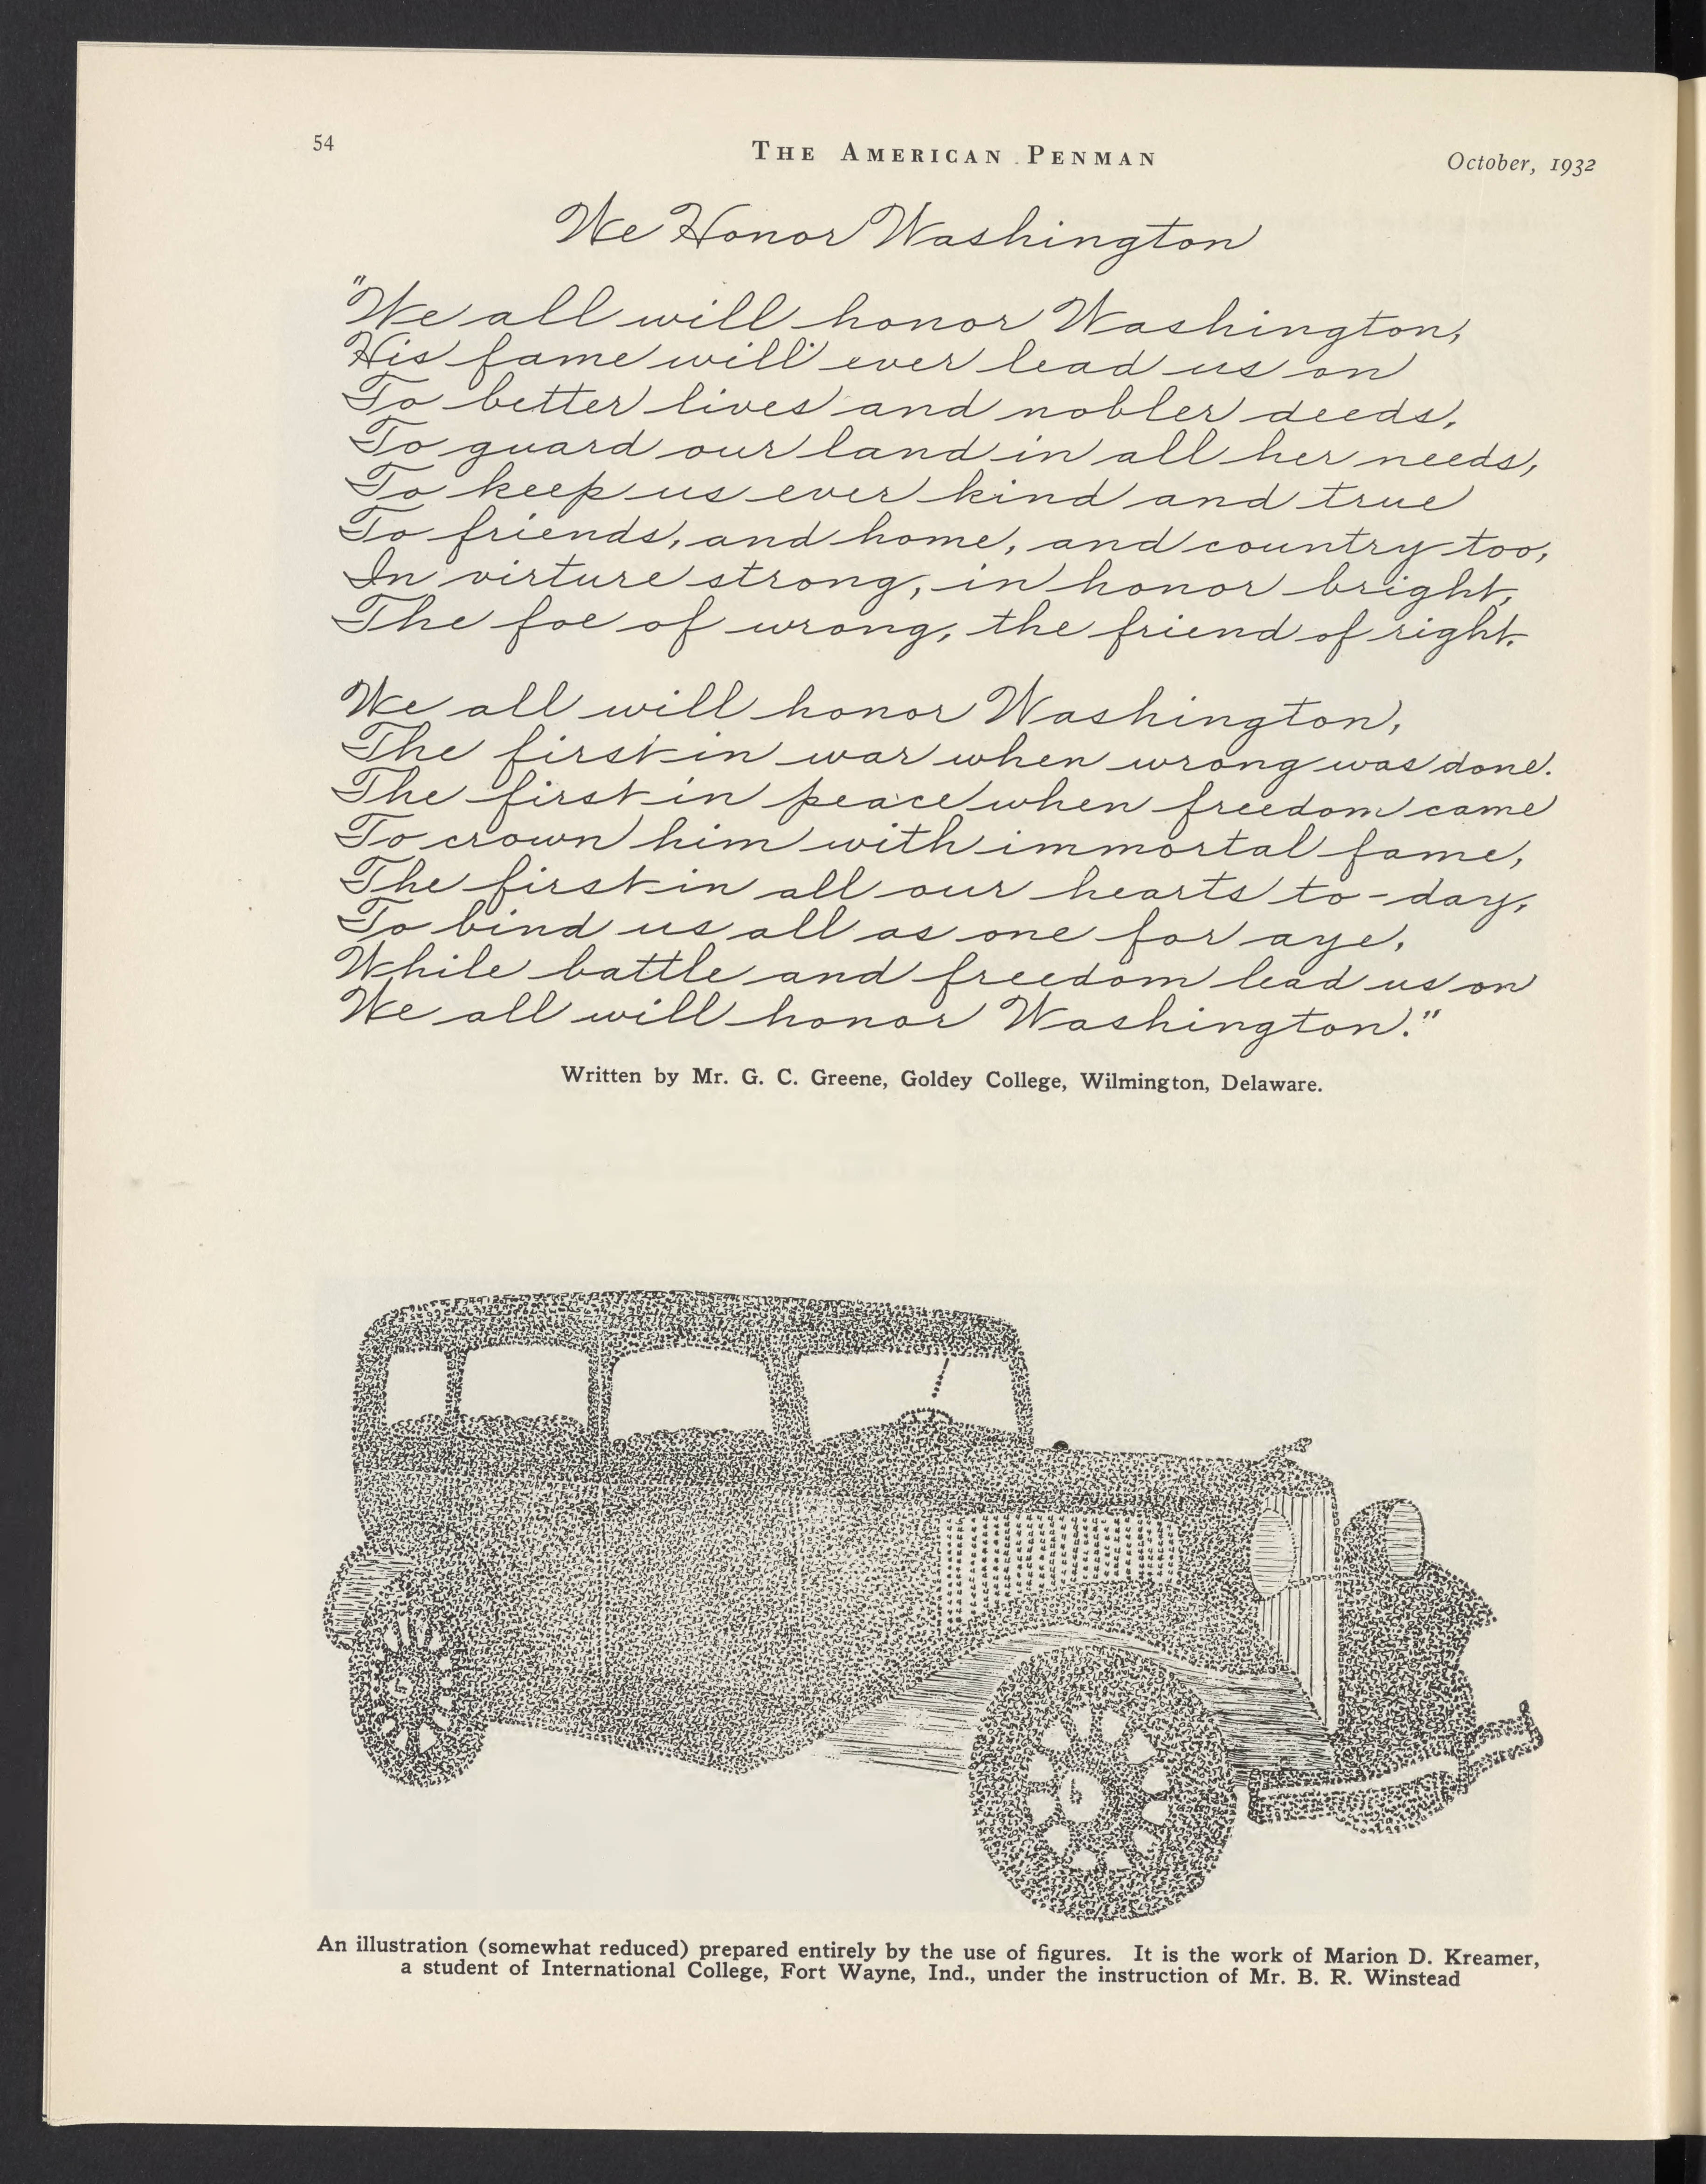 54
THE AMERICAN PENMAN
October, 1932
We Honor Washington
"We all will honor Washington,
His fame will ever lead us on
To better lives and nobler deeds,
To guard our land in all her needs,
To keep us ever kind and true
To friends, and home, and country too,
In virture strong, in honor bright,
The foe of wrong, the friend of right.
We all will honor Washington,
The first in war when wrong was done.
The first in peace when freedom came
To crown him with immortal fame,
The first in all our hearts to-day,
To bind us all as one for aye,
While battle and freedom lead us on
We all will honor Washington."
Written by Mr. G. C. Greene, Goldey College, Wilmington, Delaware.
6
6
An illustration (somewhat reduced) prepared entirely by the use of figures. It is the work of Marion D. Kreamer,
a student of International College, Fort Wayne, Ind., under the instruction of Mr. B. R. Winstead